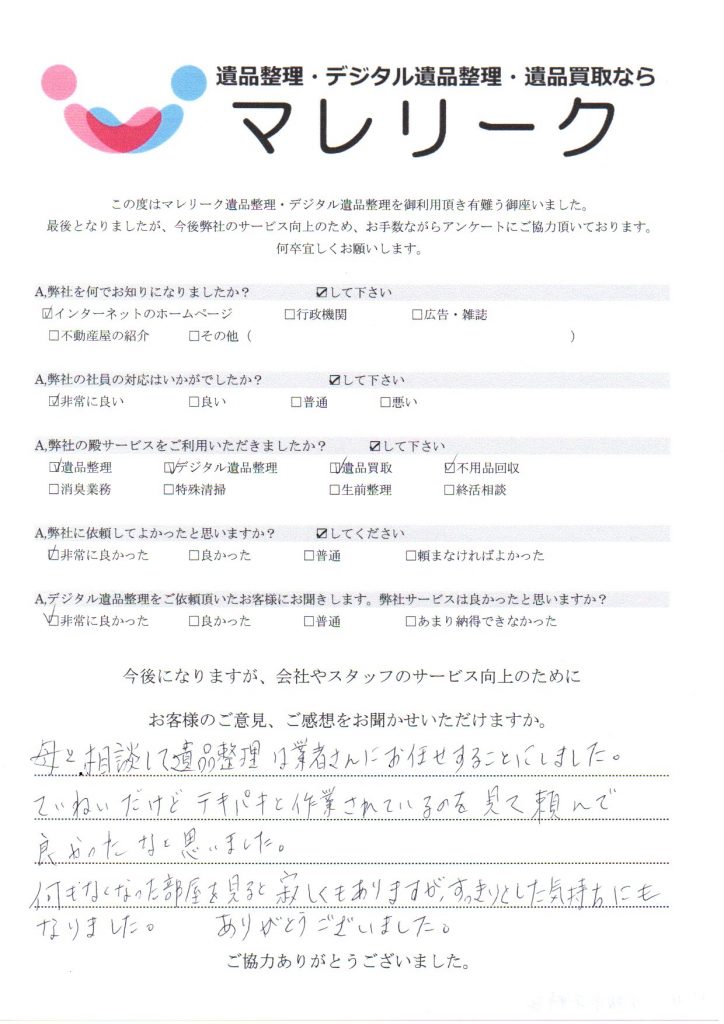 遺品整理・デジタル遺品整理・遺品買取なら
マレリーク
この度はマレリーク遺品整理・デジタル遺品整理を御利用頂き有難う御座いました。
最後となりましたが、今後弊社のサービス向上のため、お手数ながらアンケートにご協力頂いております。
何卒宜しくお願いします。
A,弊社を何でお知りになりましたか？ ☑して下さい
☑インターネットのホームページ □行政機関 □広告・雑誌
□不動産屋の紹介 □その他（ ）
A,弊社の社員の対応はいかがでしたか？ ☑して下さい
☑非常に良い □良い □普通 □悪い
A,弊社の殿サービスをご利用いただきましたか？ ☑して下さい
☑遺品整理 ☑デジタル遺品整理 ☑遺品買取 ☑不用品回収
□消臭業務 □特殊清掃 □生前整理 □終活相談
A,弊社に依頼してよかったと思いますか？ ☑してください
☑非常に良かった □良かった □普通 □頼まなければよかった
A,デジタル遺品整理をご依頼頂いたお客様にお聞きします。弊社サービスは良かったと思いますか？
☑非常に良かった □良かった □普通 □あまり納得できなかった
今後になりますが、会社やスタッフのサービス向上のために
お客様のご意見、ご感想をお聞かせいただけますか。
母と相談して遺品整理は業者さんにお任せすることにしました。
ていねいだけどテキパキと作業されているのを見て頼んで
良かったなと思いました。
何もなくなった部屋を見ると寂しくもありますが、すっきりとした気持ちにも
なりました。 ありがとうございました。
ご協力ありがとうございました。